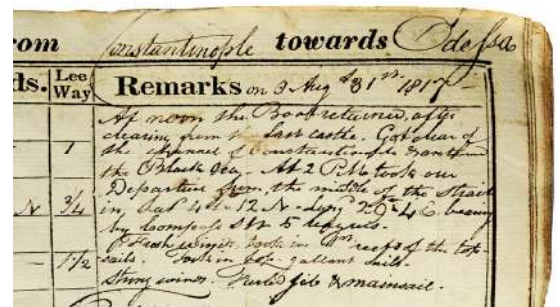 from Constantinople towards Odessa
ds. Lee Way Remarks on D Augst 31st 1817
At noon the Boat returned, after
clearing from the last castle. Got clear of
1 the channel of Constantinople & entered
the Black Sea - At 2 PM took our
Departure from the middle of the Strait
N 3/4 in Lat 41 - 12 N - Long 29 - 4 E. bearing
by Compass SW 5 leagues.
Fresh winds, took in reefs of the top
1 1/2 sails. Took in top-gallant sails.
Strong winds. Furled jib & mainsail.